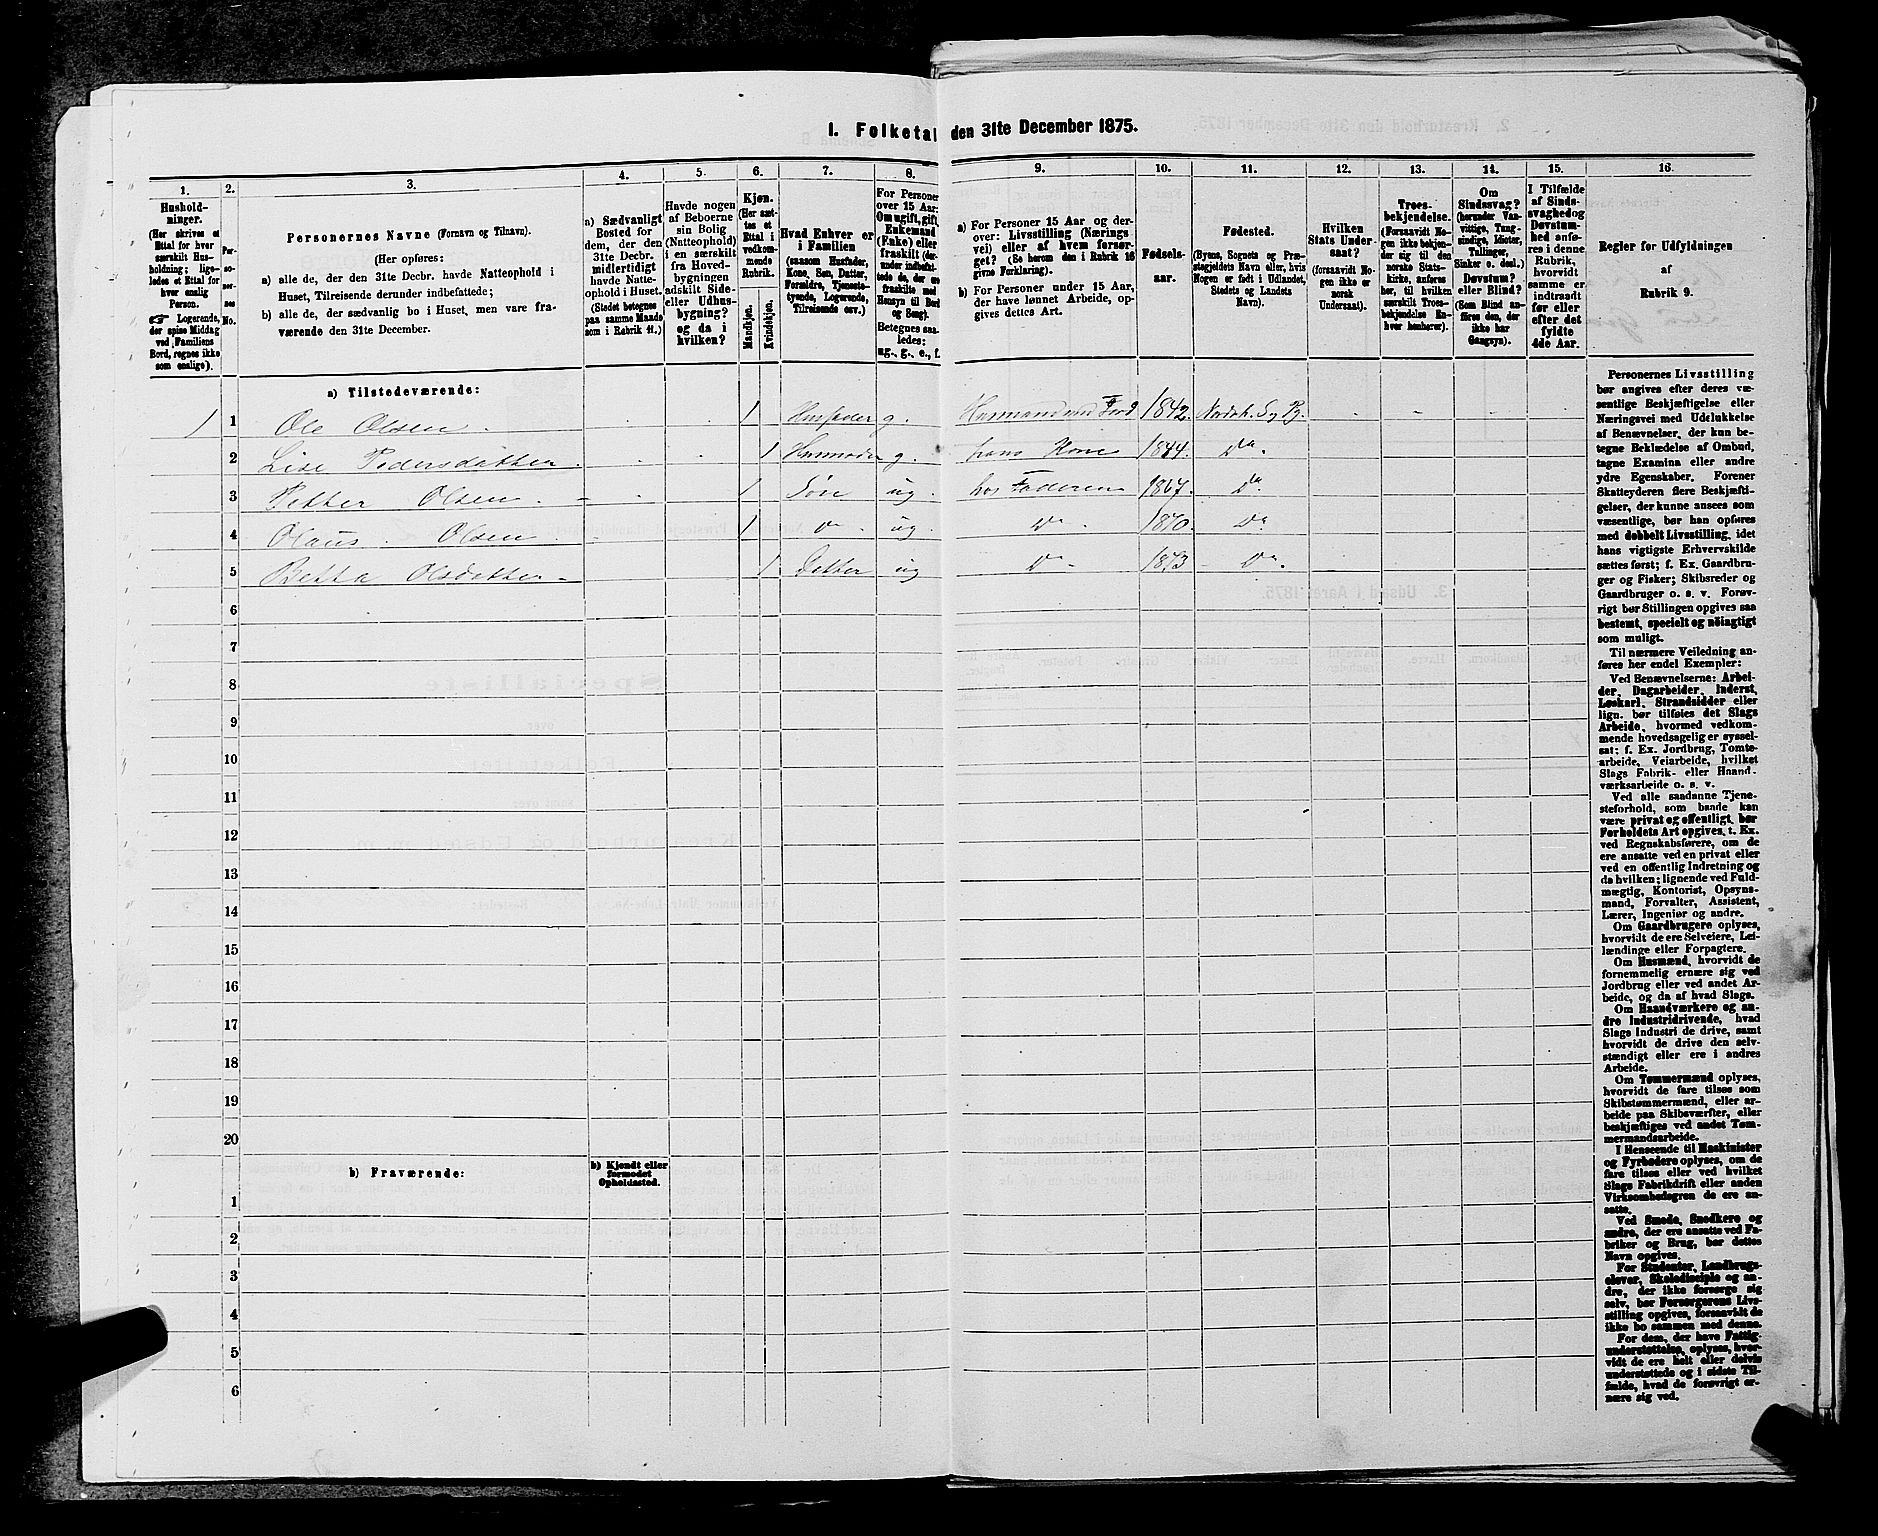 I. Folketal den 31te December 1875.
1. 2. 3. 4. 5. 6. 7. 8. 9. 10. 11. 12. 13. 14. 15. 16.
Hushold-
ninger.
(Her skrives et
Ettal for hver
særskilt Hus-
holdning; lige-
ledes et Ettal for
hver enslig
Person.
☞ Logerende,
der spise Middag
ved Familiens
Bord, regnes ikke
som enslige).
Per-
so-
ner-
nes
No.
Personernes Navne (Fornavn og Tilnavn).
(Her opføres:
a) alle de, der den 31te Decbr. havde Natteophold i
Huset, Tilreisende derunder indbefattede;
b) alle de, der sædvanlig bo i Huset, men vare fra-
værende den 31te December.
a) Sædvanligt
Bosted for
dem, der den
31te Decbr.
midlertidigt
havde Natte-
ophold i Huset.
(Stedet betegnes
paa samme Maade
som i Rubrik 11.)
Havde nogen
af Beboerne
sin Bolig
(Natteophold)
i en særskilt
fra Hoved-
bygningen
adskilt Side-
eller Udhus-
bygning?
og da i
hvilken?
Kjøn.
(Her sæt-
tes et
Ettal i
vedkom-
mende
Rubrik.
Mandkjøn.
Kvindekjøn.
Hvad Enhver er
i Familien
(saasom Husfader,
Kone, Søn, Datter,
Forældre, Tjeneste-
tyende, Logerende,
Tilreisende osv.)
For Personer
over 15 Aar:
Om ugift, gift,
Enkemand
(Enke) eller
fraskilt (der-
under indbefat-
tede de, der ere
fraskilte med
Hensyn til Bord
og Seng).
Betegnes saa-
ledes:
ug., g., e., f.
a) For Personer 15 Aar og der-
over: Livsstilling (Nærings
vei) eller af hvem forsør-
get? (Se herom den i Rubrik 16
givne Forklaring).
b) For Personer under 15 Aar,
der have lønnet Arbeide, op-
gives dettes Art.
Fødsels-
aar.
Fødested.
(Byens, Sognets eller Præ-
stegjeldets Navn eller, hvis
Nogen er født i Udlandet,
Stedets og Landets
Navn).
Hvilken
Stats Under-
saat?
(forsaavidt No-
gen ikke er
norsk
Undersaat).
Troes-
bekjendelse.
(Forsaavidt No-
gen ikke bekjen-
der sig til den
norske Stats-
kirke, anføres
her, til hvilken
særskilt Troes-
bekjendelse En-
hver henhører).
Om
Sindssvag?
(herunder Van-
vittige, Tung-
sindige, Idioter,
Tullinger,
Sinker o. desl.)
Døvstum?
eller Blind?
(Som Blind an-
føres den, der
ikke har
Gangsyn).
I Tilfælde
af Sinds-
svaghed og
Døvstum-
hed anfø-
res i denne
Rubrik,
hvorvidt
samme er
indtraadt
før eller
efter det
fyldte
4de Aar.
Regler for Udfyldningen
af
Rubrik 9.
a) Tilstedeværende:
1 1 Ole Olsen 1 Husfader g. Husmand med Jord 1842.
2 Lise Pedersdatter. 1 Husmoder g. hans Kone 1844. Do.
3 Petter Olsen 1 Søn ug. hos Faderen 1867. Do
4 Olaus Olsen 1 do ug. Do 1870. Do
5 Betta Olsdatter 1 Datter ug Do 1873 Do.
6
7
8
9
10
11
12
13
14
15
16
17
18
19
20
b) Fraværende:
b) Kjendt eller
formodet
Opholdssted.
1
2
3
4
5
6
Personernes Livsstilling
bør angives efter deres væ-
sentlige Beskjæftigelse eller
Næringsvei med Udelukkelse
af Benævnelser, der kun be-
tegne Beklædelse af Ombud,
tagne Examina eller andre
ydre Egenskaber. Forener
Skatteyderen flere Beskjæfti-
gelser, der kunne ansees som
væsentlige, bør han opføres
med dobbelt Livsstilling, idet
hans vigtigste Erhvervskilde
sættes først; f. Ex. Gaardbru-
ger og Fisker; Skibsreder og
Gaardbruger o. s. v. Forøv-
rigt bør Stillingen opgives saa
bestemt, specielt og nöiagtigt
som muligt.
Til nærmere Veiledning an-
føres her endel Exempler:
Ved Benævnelserne: Arbei-
der, Dagarbeider, Inderst,
Løskarl, Strandsidder eller
lign. bør tilføies det Slags
Arbeide, hvormed vedkom-
mende hovedsagelig er syssel-
sat; f. Ex. Jordbrug, Tomte-
arbeide, Veiarbeide, hvilket
Slags Fabrik- eller Haand-
værksarbeide o. s. v.
Ved alle saadanne Tjene-
steforhold, som baade kan
være privat og offentligt, bør
Forholdets Art opgives, t. Ex.
ved Regnskabsførere, om de
ere ansatte ved en privat eller
ved en offentlig Indretning og
da hvilken; lignende ved Fuld-
mægtig, Kontorist, Opsyns-
mand, Forvalter, Assistent,
Lærer, Ingeniør og andre.
Om Gaardbrugere oplyses,
hvorvidt de ere Selveiere, Lei-
lændinge eller Forpagtere.
Om Husmænd, hvorvidt de
fornemmelig ernære sig ved
Jordbrug eller ved andet Ar-
beide, og da af hvad Slags.
Om Haandværkere og an-
dre Industridrivende, hvad
Slags Industri de drive, samt
hvorvidt de drive den selv-
stændigt eller ere i andres
Arbeide.
Om Tømmermænd oplyses,
hvorvidt de fare tilsøs som
Skibstømmermænd, eller ar-
beide paa Skibsværfter, eller
beskjæftiges ved andet Tøm-
mermandsarbeide.
I Henseende til Maskinister
og Fyrbødere oplyses, om de
fare tilsøs eller ved hvilket
Slags Fabrikdrift eller anden
Virksombedsgren de ere an-
satte.
Ved Smede, Snedkere og
andre, der ere ansatte ved Fa-
briker og Brug, bør dettes
Navn opgives.
For Studenter, Landbrugs-
elever, Skoledisciple og an-
dre, der ikke forsørge sig
selv, bør Forsørgerens Livs-
stilling opgives, forsaavidt de
ikke bo sammen med denne.
For dem, der have Fattig-
understøttelse, oplyses, hvor-
vidt de ere helt eller delvis
understøttede og i sidste Til-
fælde, hvad de forøvrigt er-
nære sig ved.